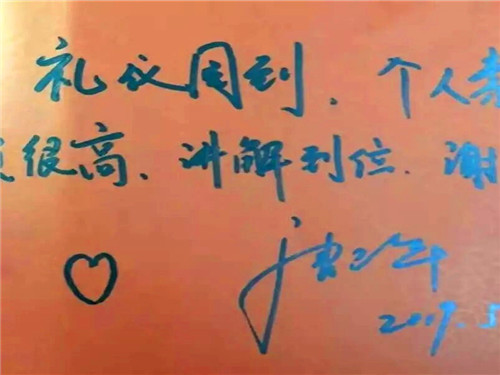 礼仪周到、个人素
很高、讲解到位.谢
2019.5